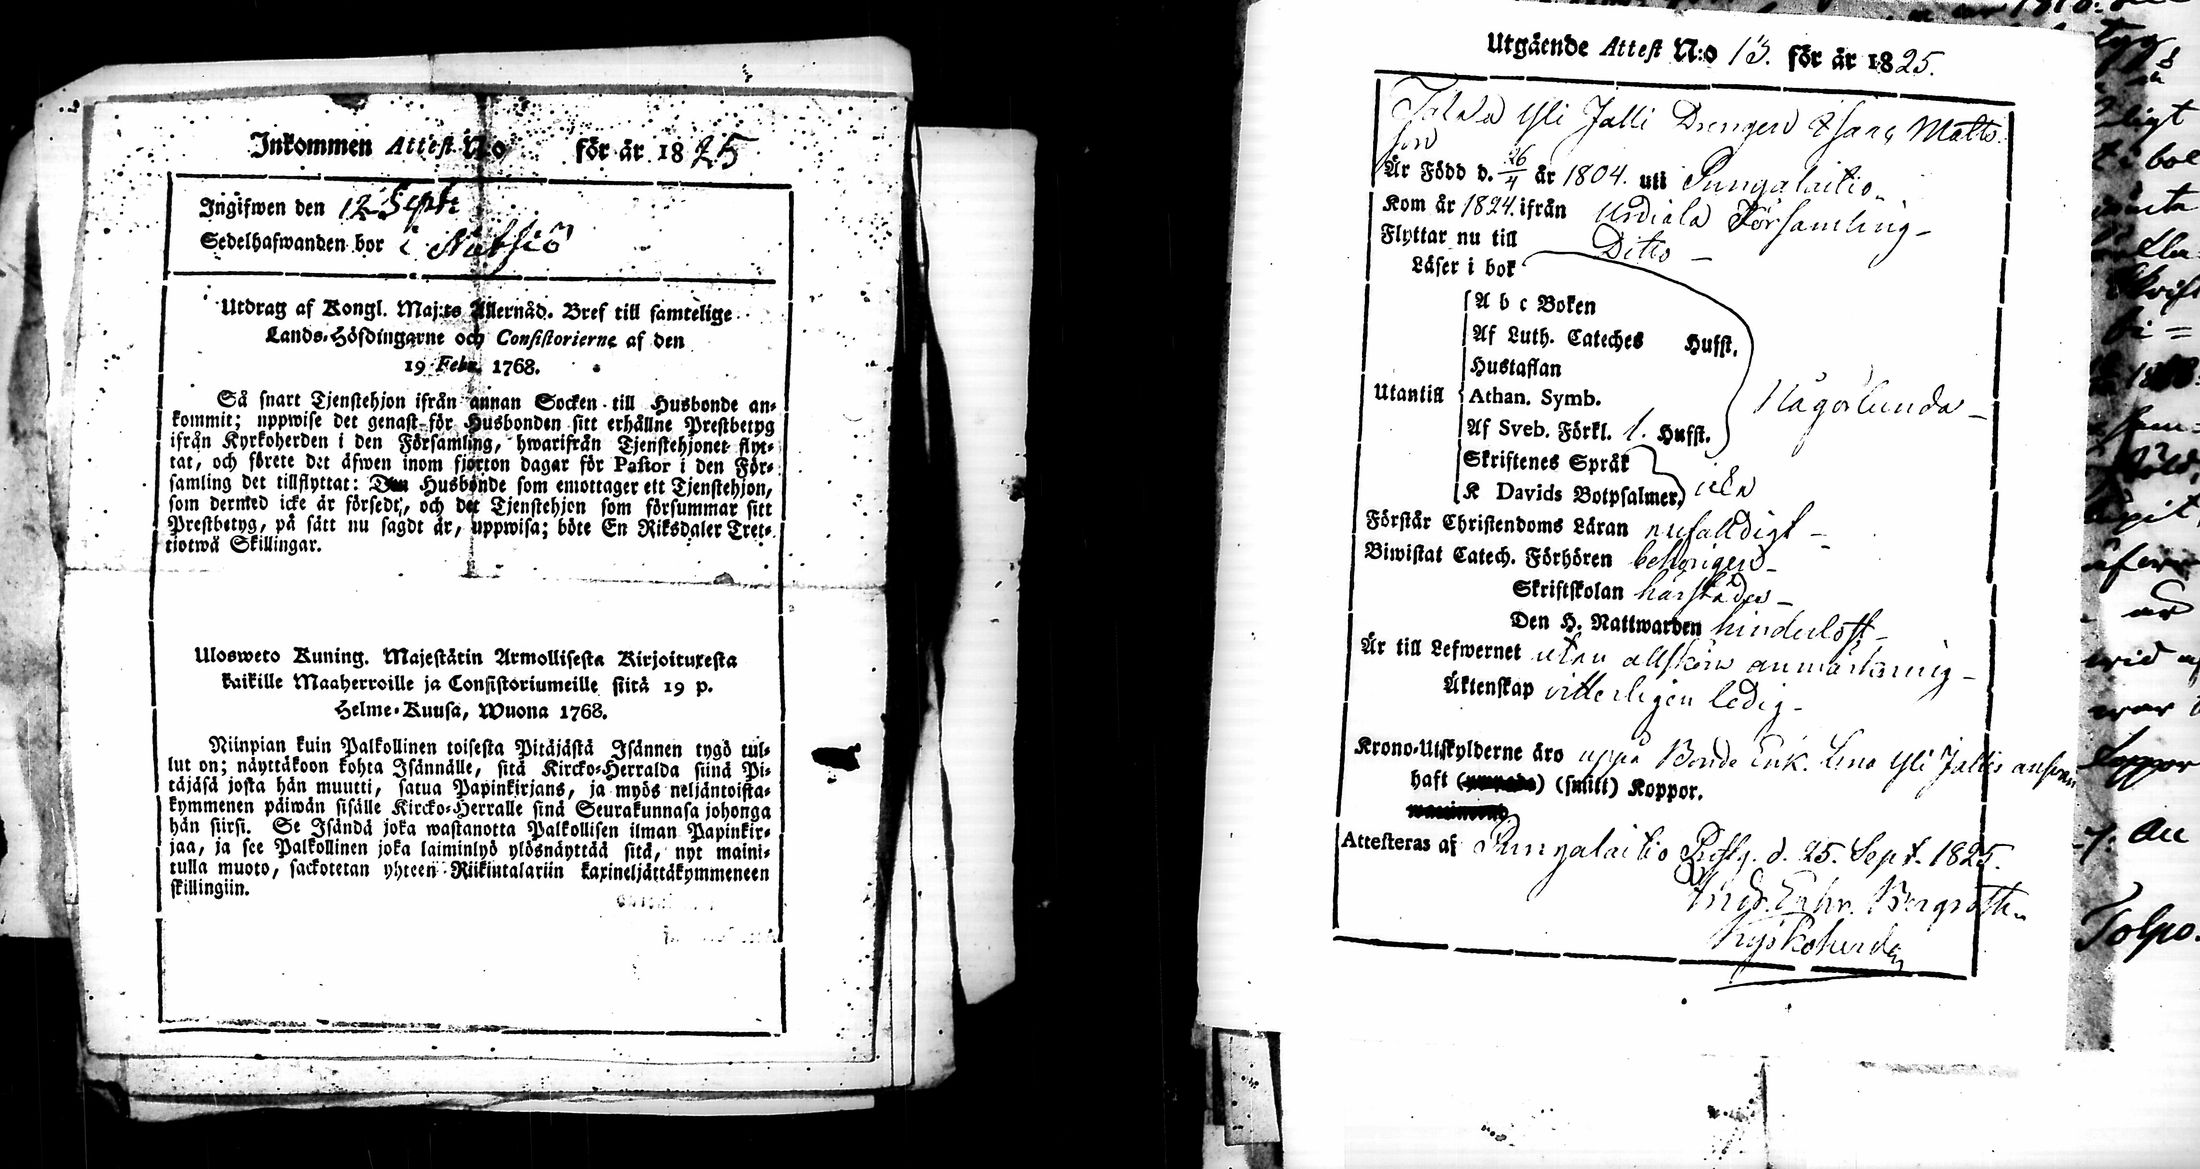 Inkommen Attest N:o för år 1825
Ingifwen den 12 Sept:
Sedelhafwanden bor i
Utdrag af Kongl. Maj:ts Allernåd. Bref till samtelige
Lands-Höfdingarne och Consistorierne af den
19 Febr. 1768.
Så snart Tjenstehjon ifrån annan Socken till Husbonde an-
kommit; uppwise det genast för Husbonden sitt erhållne Prestbetyg
ifrån Kyrkoherden i den Församling, hwarifrån Tjenstehjonet flyt-
tat, och förete det äfwen inom fjorton dagar för Pastor i den För-
samling det tillflyttat: Den Husbonde som emottager ett Tjenstehjon,
som dermed icke är försedt, och det Tjenstehjon som försummar sitt
Prestbetyg, på sätt nu sagdt är, uppwisa; böte En Riksdaler Tret-
tiotwå Skillingar.
Ulosweto Kuning. Majestätin Armollisesta Kirjoituxesta
kaikille Maaherroille ja Consistoriumeille siitä 19 p.
Helme-Kuusa, Wuona 1768.
Niinpian kuin Palkollinen toisesta Pitäjästä Isännen tygö tul-
lut on; näyttäkoon kohta Isännälle, sitä Kircko-Herralda siinä Pi-
täjäsä josta hän muutti, saatua Papinkirjans, ja myös neljäntoista-
kymmenen päiwän sisälle Kircko-Herralle sinä Seurakunnasa johonga
hän siirsi. Se Isändä joka wastanotta Palkollisen ilman Papinkir-
jaa, ja see Palkollinen joka laiminlyö ylösnäyttää sitä, nyt maini-
tulla muoto, sackotetan yhteen Riikintalariin kaxineljättäkymmeneen
skillingiin.
Utgående Attest N:o 13. för år 1825.
Yli Jalli Drengen Isaac Matts
son
Är Född d. 26/4 år 1804. uti Pungalaitio
Kom år 1824. ifrån Urdiala Församling
Flyttar nu till Ditto
Läser i bok
A b c Boken
Af Luth. Cateches Hufst.
Hustaflan
Utantill Athan. Symb. Någorlunda
Af Sveb. Förkl. 1. Hufst.
Skriftenes Språk
K Davids Botpsalmer, icke
Förstår Christendoms Läran enfalldigt
Biwistat Catech. Förhören behörigen
Skriftskolan härstädes
Den H. Nattwarden hinderlöst
Är till Lefwernet utan allskön anmärkning
Äktenskap vitterligen ledig
Krono-Utskylderne äro uppå Bonde Enk. Lena Yli Jallis ansvar
haft () (smitt) Koppor.
Attesteras af Pungalaitio Prestg. d. 25. Sept. 1825.
Andr. Enhr. Bergroth
Kyrkoherde